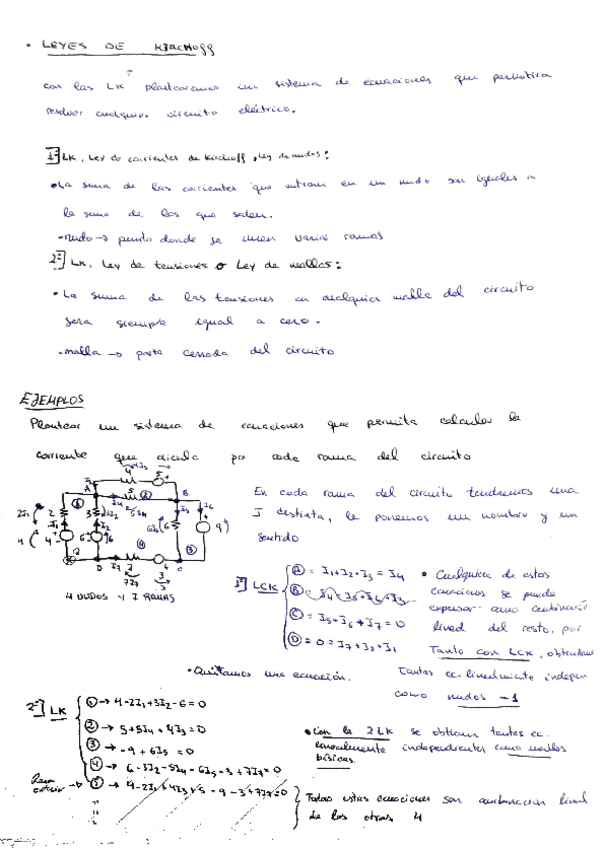 • LEYES DE KIRCHOFF
con las LK plantearemos un sistema de ecuaciones que permitira
resolver cualquier circuito eléctrico.
1ª] LK, Ley de corrientes de Kirchoff, Ley de nudos:
• La suma de las corrientes que entran en un nudo son iguales a
la suma de las que salen.
- nudo → punto donde se unen varias ramas
2ª] LK, Ley de tensiones o Ley de mallas:
• La suma de las tensiones en cualquier malla del circuito
sera siempre igual a cero.
- malla → parte cerrada del circuito
EJEMPLOS
Plantear un sistema de ecuaciones que permita calcular la
corriente que circula por cada rama del circuito
En cada rama del circuito tendremos una
I distinta, le ponemos un nombre y un
sentido
4 NUDOS Y 7 RAMAS
1ª] LCK
A = I1+I2+I3 = I4
B
C = I5+I6+I7 = 0
D = 0 = I7+I2+I1
• Cualquiera de estas
ecuaciones se puede
expresar como combinación
lineal del resto, por
Tanto con LCK, obtendremos
Tantas ec. linealmente indepen
como nudos -1
• Quitamos una ecuación.
2ª] LK
1 → 4-2I1+3I2-6=0
2 → 5+5I4+4I3=0
3 → -9+6I5=0
4 → 6-3I2-5I4-6I5-3+7I7=0
5 → 4-2I1+4I3+5-9-3+7I7=0
• Con la 2LK se obtienen tantas ec.
linealmente independientes como mallas
básicas.
Todas estas ecuaciones son combinacion lineal
de las otras 4